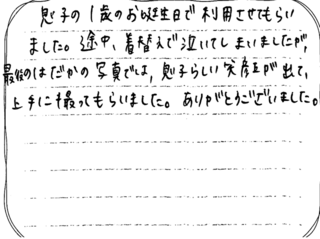 息子の1歳のお誕生日で利用させてもらい
ました。途中、着替えで泣いてしまいましたが、
最後のはだかの写真では、息子らしい笑顔が出て、
上手に撮ってもらいました。ありがとうございました。